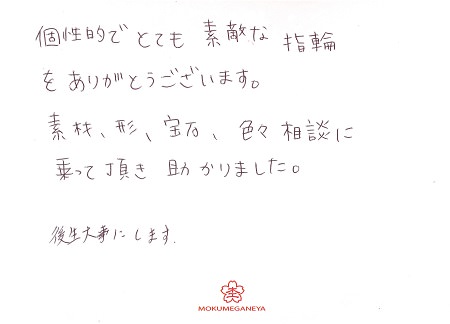 個性的でとても素敵な指輪
をありがとうございます。
素材、形、宝石、色々相談に
乗って頂き助かりました。
後生大事にします.
MOKUMEGANEYA